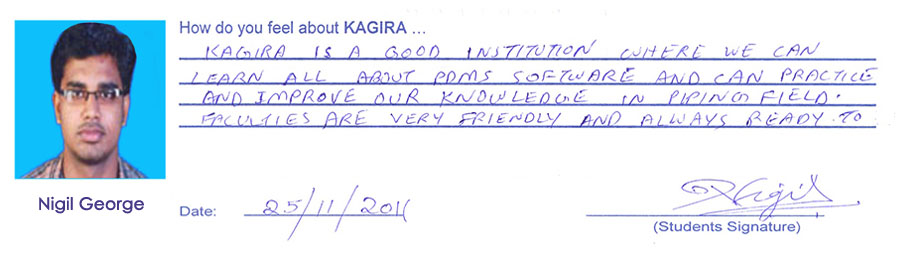 How do you feel about KAGIRA ...
KAGIRA IS A GOOD INSTITUTION WHERE WE CAN
LEARN ALL ABOUT PDMS SOFTWARE AND CAN PRACTICE
AND IMPROVE OUR KNOWLEDGE IN PIPING FIELD.
FACULTIES ARE VERY FRIENDLY AND ALWAYS READY TO
Nigil George
Date: 25/11/2011
Nigil
(Students Signature)